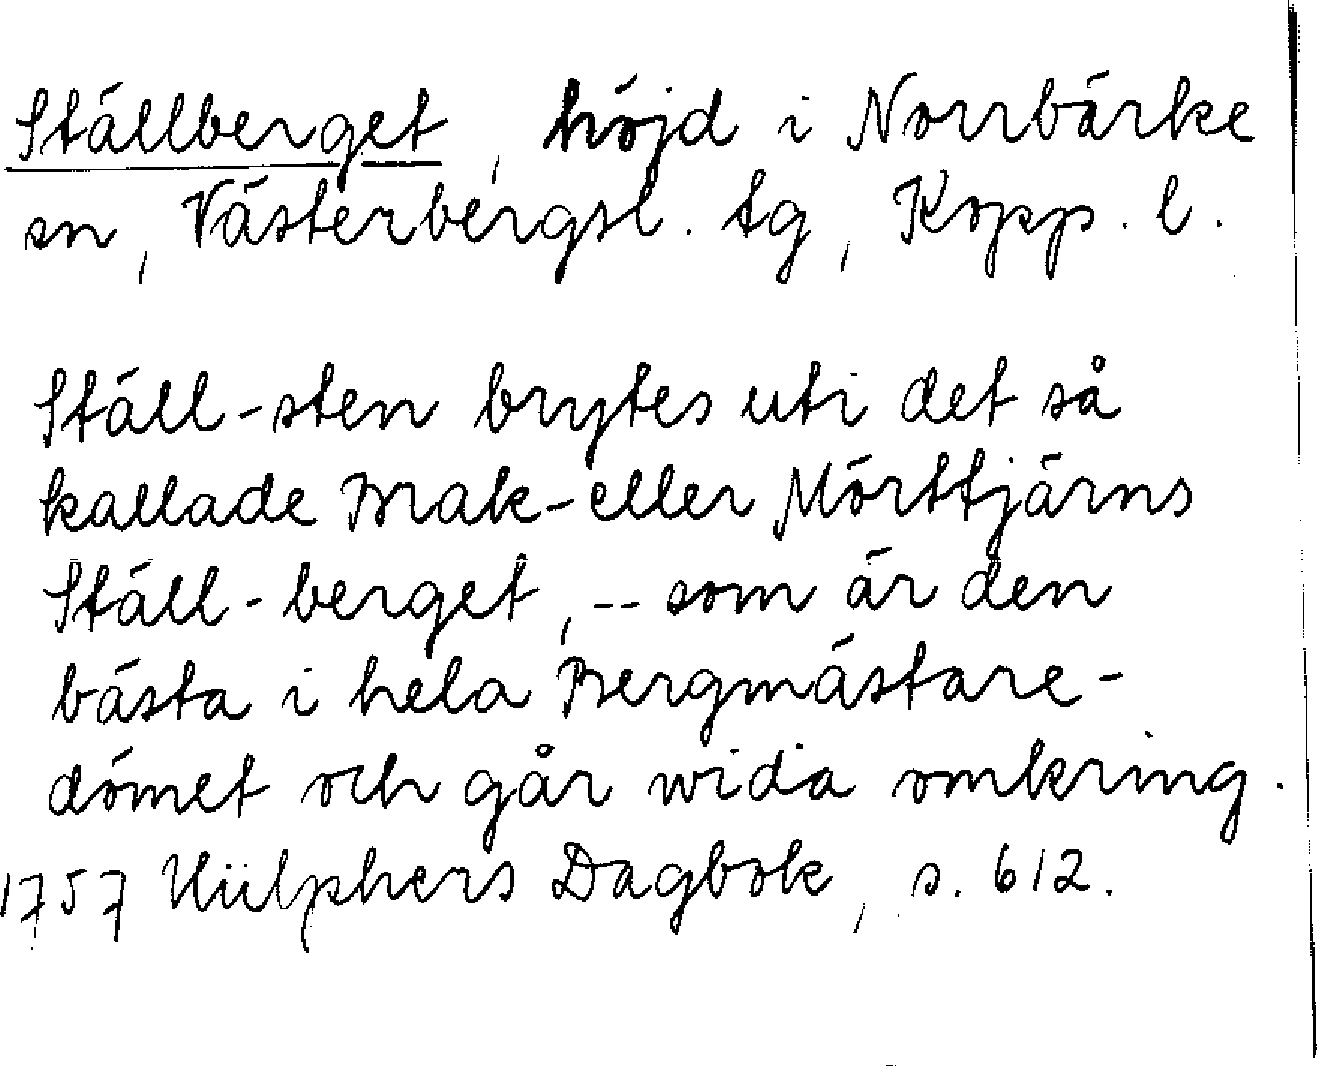 Ställberget, höjd i Norrbärke
sn, Västerbergsl. tg, Kopp. l.
Ställ-sten brytes uti det så
kallade Brak- eller Mörttjärns
Ställ-berget, -- som är den
bästa i hela Bergmästare-
dömet och går wida omkring.
1757 Hülphers Dagbok, s. 612.